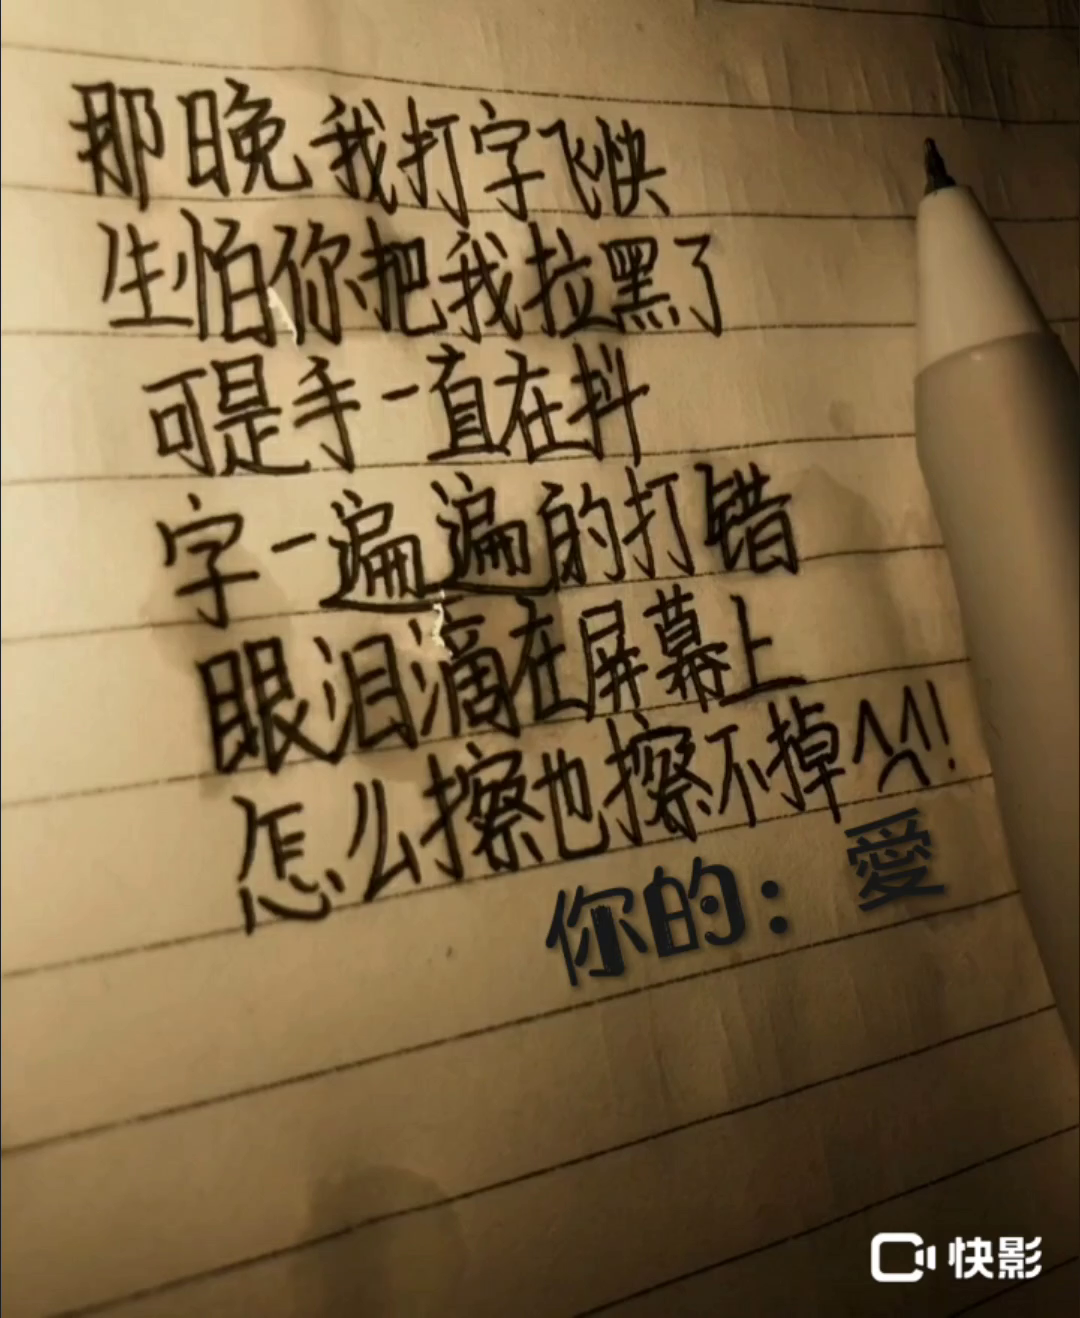 那晚我打字飞快
生怕你把我拉黑了
可是手一直在抖
字一遍遍的打错
眼泪滴在屏幕上
怎么擦也擦不掉^^!
你的：愛
快影